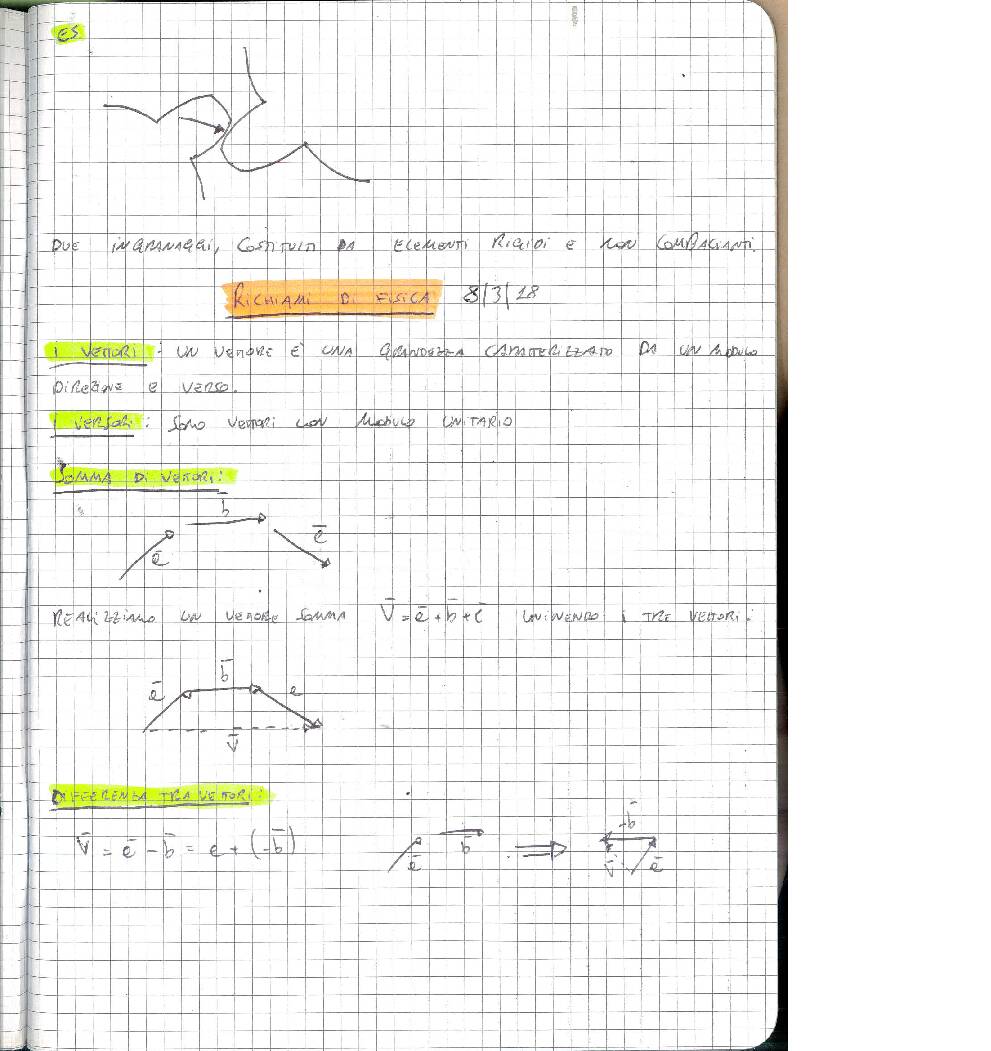 ES
DUE INGRANAGGI, COSTITUITI DA ELEMENTI RIGIDI E NON COMBACIANTI.
RICHIAMI DI FISICA 8/3/18
I VETTORI: UN VETTORE È UNA GRANDEZZA CARATTERIZZATO DA UN MODULO
DIREZIONE E VERSO.
I VERSORI: SONO VETTORI CON MODULO UNITARIO
SOMMA DI VETTORI:
b̅
a̅ c̅
REALIZZIAMO UN VETTORE SOMMA V̅ = a̅ + b̅ + c̅ UNINENDO I TRE VETTORI:
b̅
a̅ c
V̅
DIFFERENZA TRA VETTORI:
-b̅
V̅ = a̅ - b̅ = a + (-b̅) a̅ b̅ ⟹ V̅ a̅